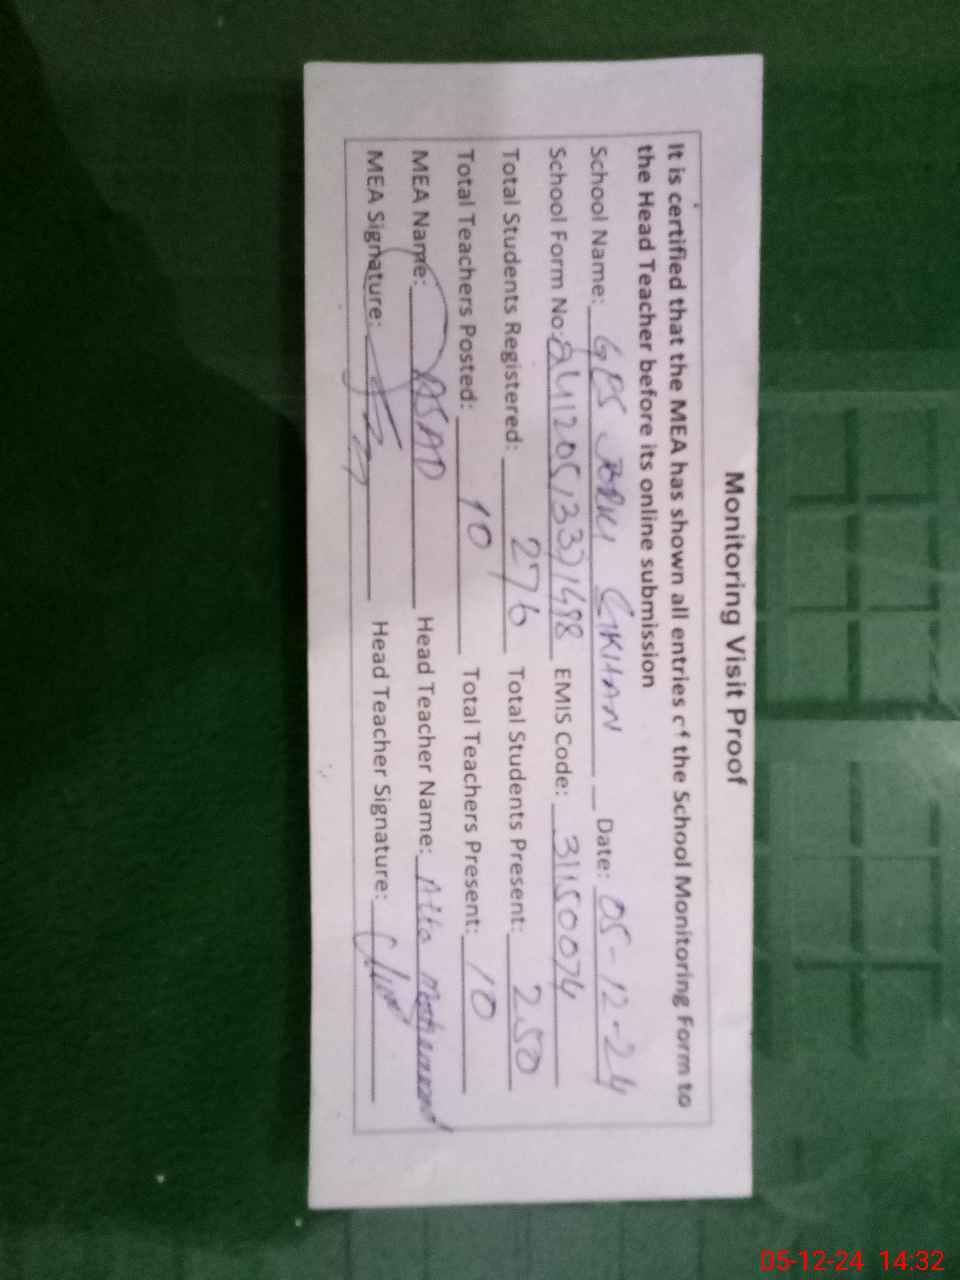 Monitoring Visit Proof
It is certified that the MEA has shown all entries of the School Monitoring Form to
the Head Teacher before its online submission
School Name: GES GIKHAN Date: 05-12-24
School Form No: EMIS Code: 31150074
Total Students Registered: 276 Total Students Present: 250
Total Teachers Posted: 10 Total Teachers Present: 10
MEA Name: ASAD Head Teacher Name: Atta
MEA Signature: Head Teacher Signature:
05-12-24 14:32